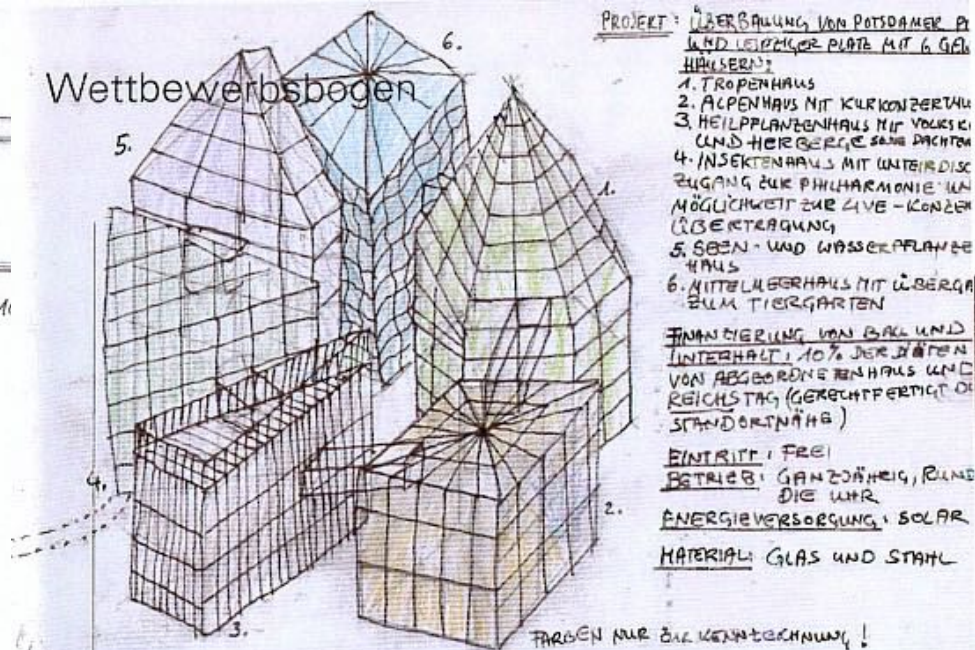 Wettbewerbsbogen
PROJEKT: ÜBERBAUUNG VON POTSDAMER
UND LEIPZIGER PLATZ MIT 6
HÄUSERN:
1. TROPENHAUS
2. ALPENHAUS MIT
3. HEILPFLANZENHAUS MIT
UND HERBERGE
4. INSEKTENHAUS MIT
ZUGANG ZUR PHILHARMONIE
MÖGLICHKEIT ZUR LIVE-
ÜBERTRAGUNG
5. SEEN- UND
HAUS
6. MITTELMEERHAUS MIT
ZUM TIERGARTEN
FINANZIERUNG VON BAU UND
UNTERHALT: 10% DER DIÄTEN
VON ABGEORDNETENHAUS UND
REICHSTAG (GERECHTFERTIGT
STANDORTNÄHE)
EINTRITT: FREI
BETRIEB: GANZJÄHRIG,
DIE UHR
ENERGIEVERSORGUNG: SOLAR
MATERIAL: GLAS UND STAHL
FARBEN NUR ZUR KENNZEICHNUNG!
6.
5.
1.
4.
2.
3.